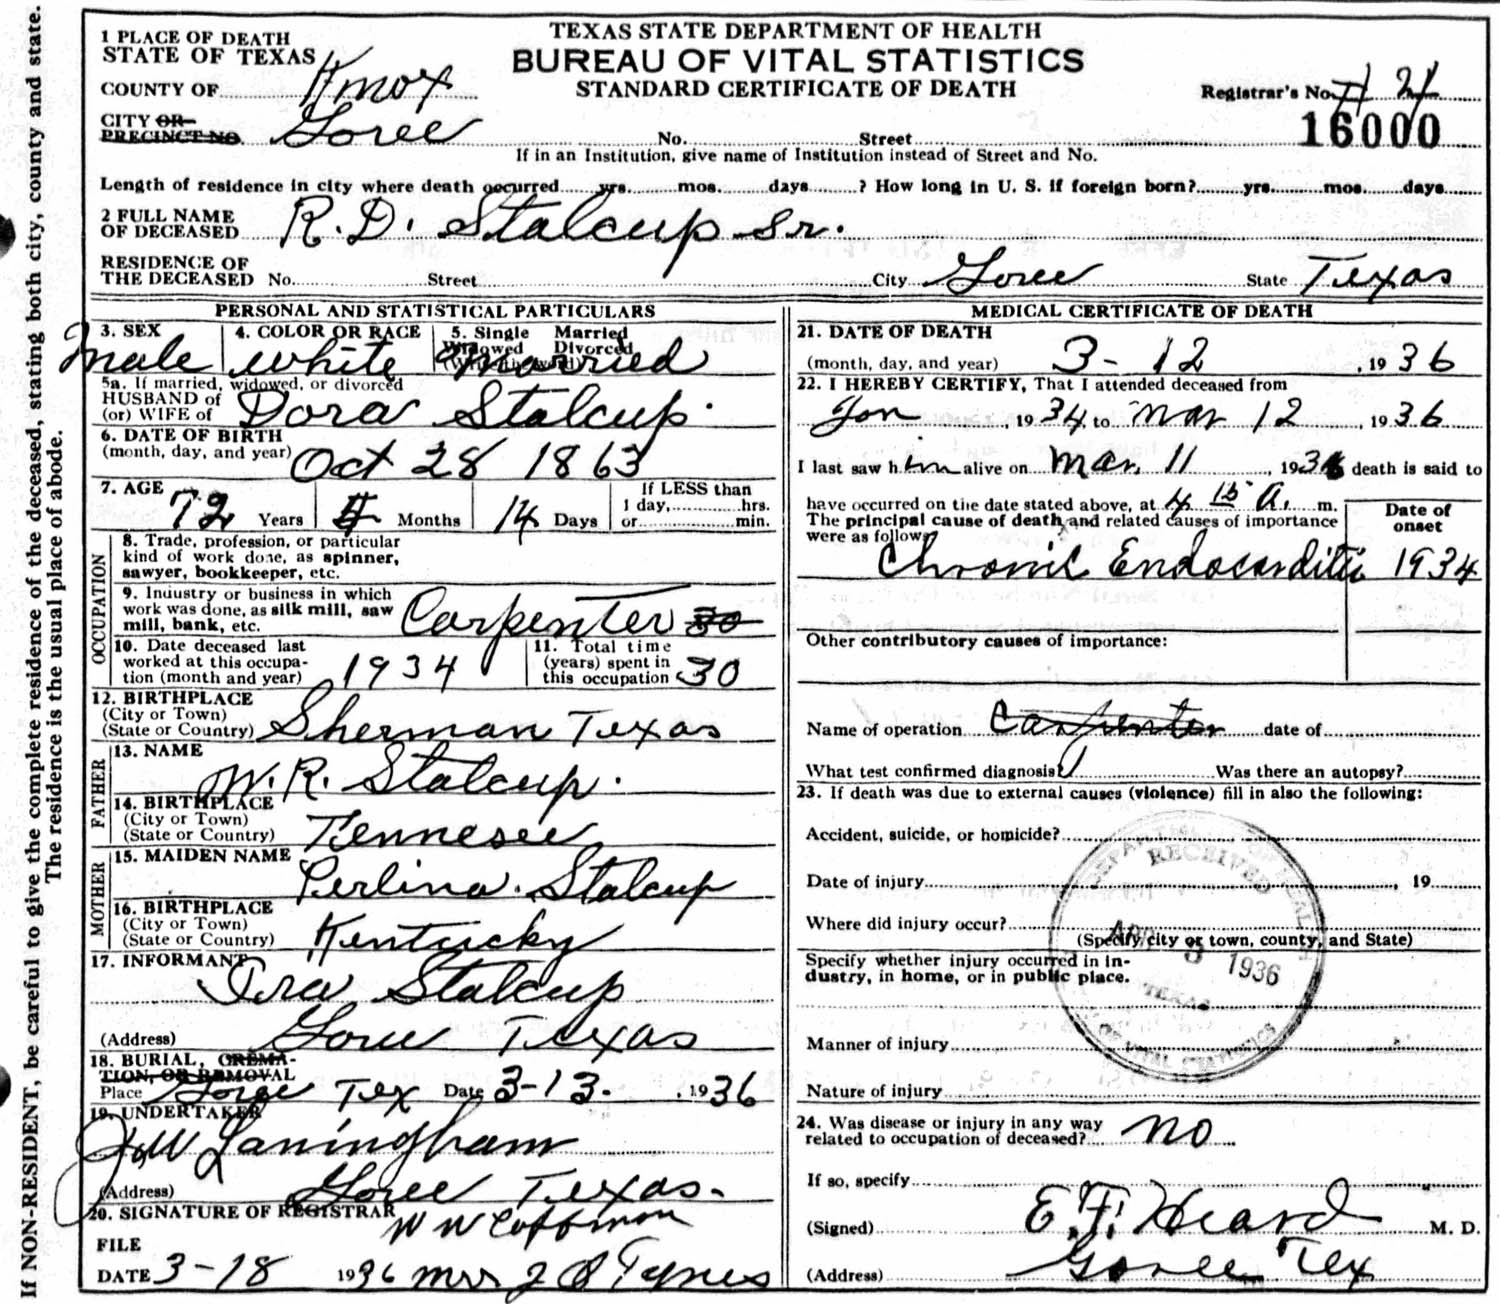 TEXAS STATE DEPARTMENT OF HEALTH
BUREAU OF VITAL STATISTICS
STANDARD CERTIFICATE OF DEATH
1 PLACE OF DEATH
STATE OF TEXAS
COUNTY OF Knox
CITY OR PRECINCT NO. Goree
No. Street
If in an Institution, give name of Institution instead of Street and No.
Registrar's No. 21
16000
Length of residence in city where death occurred yrs. mos. days ? How long in U. S. if foreign born? yrs. mos. days
2 FULL NAME
OF DECEASED R. D. Stalcup Sr.
RESIDENCE OF
THE DECEASED No. Street City Goree State Texas
PERSONAL AND STATISTICAL PARTICULARS
3. SEX Male
4. COLOR OR RACE white
5. Single Married
Widowed Divorced
married
5a. If married, widowed, or divorced
HUSBAND of
(or) WIFE of Dora Stalcup.
6. DATE OF BIRTH
(month, day, and year) Oct 28 1863
7. AGE 72 Years 4 Months 14 Days
If LESS than
1 day, hrs.
or min.
OCCUPATION
8. Trade, profession, or particular
kind of work done, as spinner,
sawyer, bookkeeper, etc.
9. Industry or business in which
work was done, as silk mill, saw
mill, bank, etc. Carpenter 30
10. Date deceased last
worked at this occupa-
tion (month and year) 1934
11. Total time
(years) spent in
this occupation 30
12. BIRTHPLACE
(City or Town)
(State or Country) Sherman Texas
FATHER
13. NAME W. R. Stalcup.
14. BIRTHPLACE
(City or Town)
(State or Country) Tennesee
MOTHER
15. MAIDEN NAME Perlina. Stalcup
16. BIRTHPLACE
(City or Town)
(State or Country) Kentucky
17. INFORMANT Ira Stalcup
(Address) Goree Texas
18. BURIAL, CREMA-
TION, OR REMOVAL
Place Goree Tex Date 3-13. , 1936
19. UNDERTAKER
Laningham
(Address) Goree Texas.
20. SIGNATURE OF REGISTRAR
W W Coffman
FILE
DATE 3-18 1936 Mrs J O Tynes
MEDICAL CERTIFICATE OF DEATH
21. DATE OF DEATH
(month, day, and year) 3-12 , 1936
22. I HEREBY CERTIFY, That I attended deceased from
Jan , 1934, to Mar 12 , 1936
I last saw him alive on Mar, 11 , 1936 death is said to
have occurred on the date stated above, at 4 15 A. m.
The principal cause of death and related causes of importance
were as follows
Date of
onset
Chronic Endocarditis 1934
Other contributory causes of importance:
Name of operation Carpenter date of
What test confirmed diagnosis? Was there an autopsy?
23. If death was due to external causes (violence) fill in also the following:
Accident, suicide, or homicide?
Date of injury , 19
Where did injury occur?
(Specify city or town, county, and State)
Specify whether injury occurred in in-
dustry, in home, or in public place.
Manner of injury
Nature of injury
RECEIVED
APR 3 1936
TEXAS
OF VITAL STATISTICS
24. Was disease or injury in any way
related to occupation of deceased? no
If so, specify
(Signed) E. F. Heard M. D.
(Address) Goree Tex
If NON-RESIDENT, be careful to give the complete residence of the deceased, stating both city, county and state.
The residence is the usual place of abode.